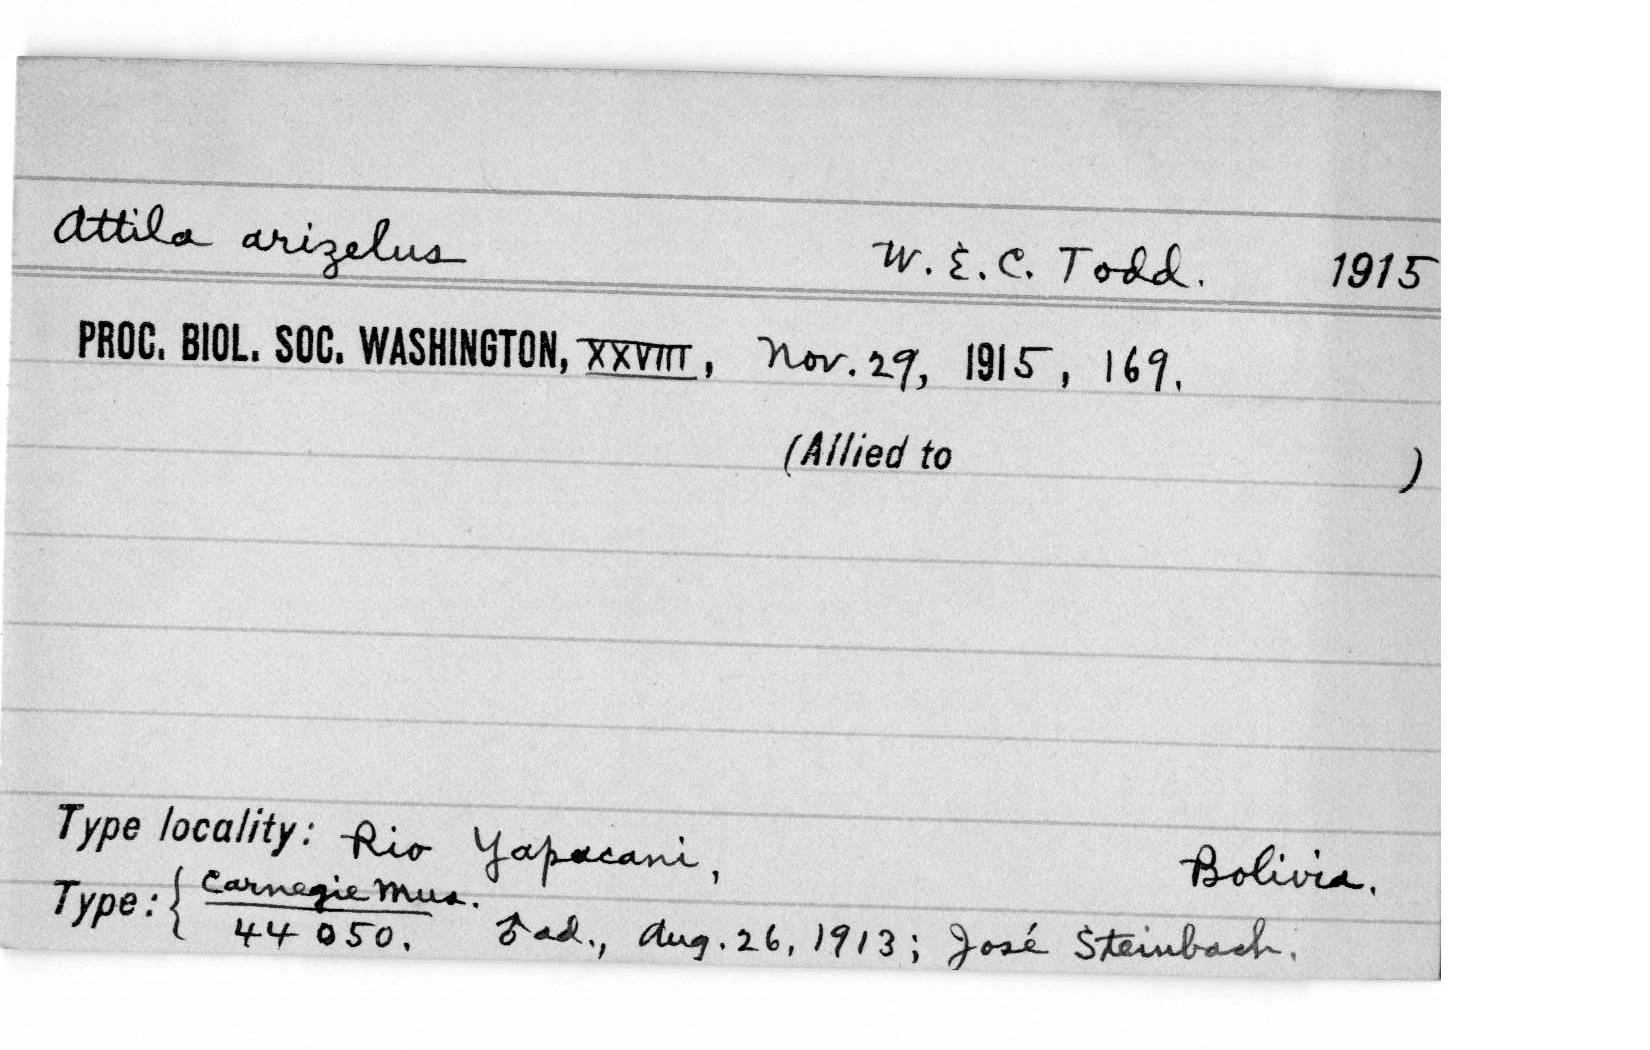 Attila arizelus W. E. C. Todd. 1915
PROC. BIOL. SOC. WASHINGTON, XXVIII, Nov. 29, 1915, 169.
(Allied to )
Type locality: Rio Yapacani, Bolivia.
Type: { Carnegie Mus.
44050. ♂ ad., Aug. 26, 1913; José Steinbach.